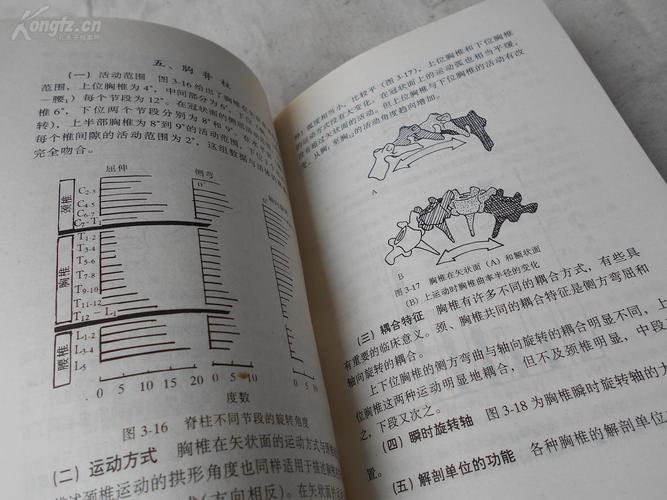 Kongfz.cn
五、胸脊柱
(一) 活动范围 图 3-16 给出了胸椎在
范围，上位胸椎为 4°，中间部分为 6°，下
—腰₁) 每个节段为 12°。在冠状面的侧屈活动
椎 6°，下位两个节段分别为 8°和 9°，在水
转)，上半部胸椎为 8°到 9°的活动范围，下位
每个椎间隙的活动范围为 2°，这组数据与
完全吻合。
屈伸
侧弯
颈椎
C₂₋₃
C₄₋₅
C₆₋₇
C₇-T₁
胸椎
T₁₋₂
T₃₋₄
T₅₋₆
T₇₋₈
T₉₋₁₀
T₁₁₋₁₂
T₁₂－L₁
腰椎
L₁₋₂
L₃₋₄
L₅
0 5 10 15 20
0 5 10
0 5 10
度数
图 3-16 脊柱不同节段的旋转角度
(二) 运动方式 胸椎在矢状面的运动方式与
描述颈椎运动的拱形角度也同样适用于描述
(方向相反)。在矢状面
度相当小，比较平 (图 3-17)，上位胸椎和下位胸椎
的运动方式没有太大变化。在冠状面上的运动弧也相当平缓，
没有超过矢状面的活动。但上位胸椎与下位胸椎的活动有改
变。从胸₁至胸₁₂的活动角度趋向增加。
A
B
图 3-17 胸椎在矢状面 (A) 和额状面
(B) 上运动时胸椎曲率半径的变化
(三) 耦合特征 胸椎有许多不同的耦合方式，有些具
有重要的临床意义。颈、胸椎共同的耦合特征是侧方弯屈和
轴向旋转的耦合。
上下位胸椎的侧方弯曲与轴向旋转的耦合明显不同，上
位胸椎这两种运动明显地耦合，但不及颈椎明显，中段
之，下段又次之。
(四) 瞬时旋转轴 图 3-18 为胸椎瞬时旋转轴的大
置。
(五) 解剖单位的功能 各种胸椎的解剖单